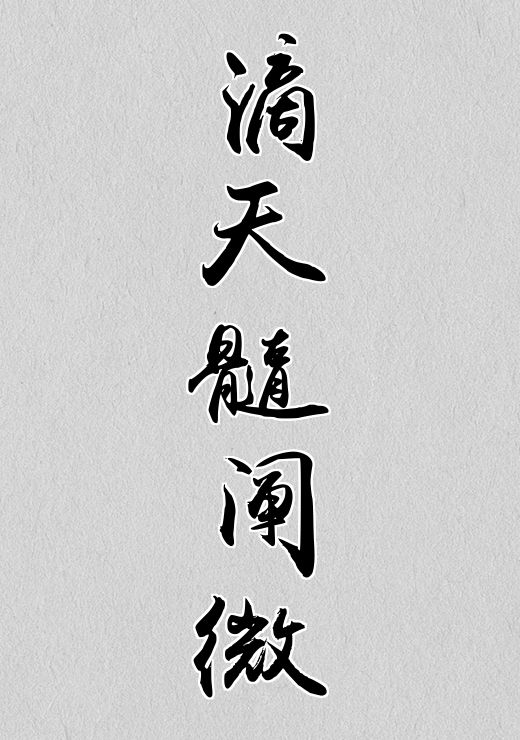 滴天髓阐微